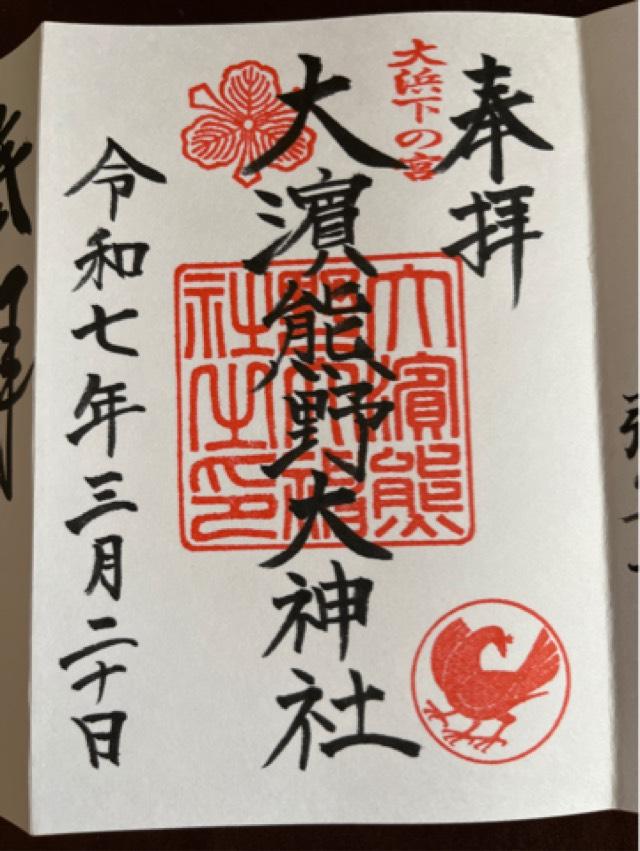 奉拝
大浜下の宮
大濱熊野大神社
大濱熊
野大神
社之印
令和七年三月二十日